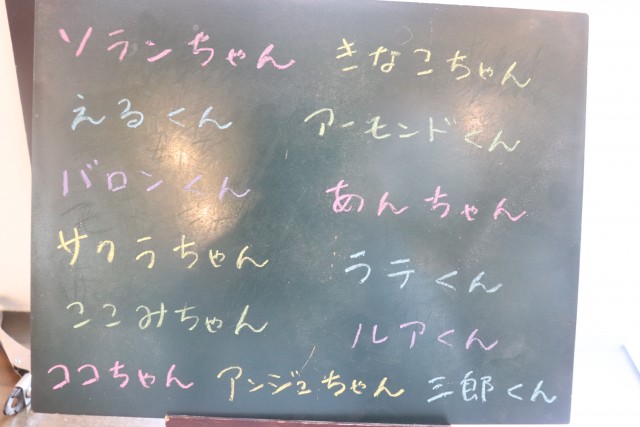 ソランちゃん
きなこちゃん
えるくん
アーモンドくん
バロンくん
あんちゃん
サクラちゃん
ラテくん
ここみちゃん
ルアくん
ココちゃん アンジュちゃん 三郎くん